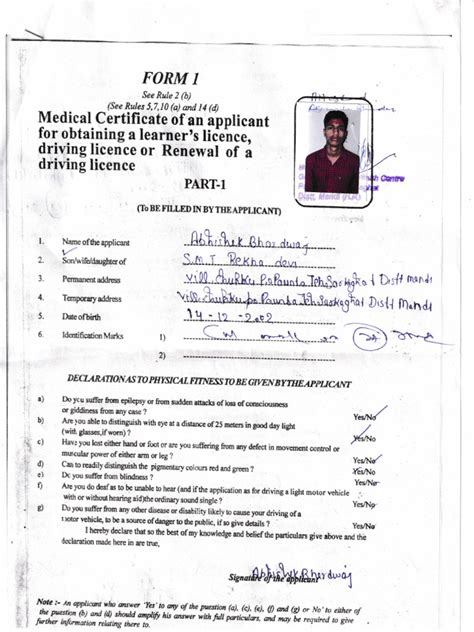 FORM 1
See Rule 2 (b)
(See Rules 5,7,10 (a) and 14 (d)
Medical Certificate of an applicant
for obtaining a learner's licence,
driving licence or Renewal of a
driving licence
PART-1
(To BE FILLED IN BY THE APPLICANT)
Centre
Distt. Mandi (H.P.)
1. Name of the applicant Abhishek Bhardwaj
2. Son/wife/daughter of S.M.T Rekha devi
3. Permanent address Vill. P.o Paunta Teh Sarkaghat Distt Mandi
4. Temporary address Vill. po Paunta Teh Sarkaghat Distt Mandi
5. Date of birth 14-12-2002
6. Identification Marks 1) small on
2)
DECLARATION AS TO PHYSICAL FITNESS TO BE GIVEN BY THE APPLICANT
a) Do you suffer from epilepsy or from sudden attacks of loss of consciousness
or giddiness from any case ? Yes/No
b) Are you able to distinguish with eye at a distance of 25 meters in good day light
(with glasses, if worn) ? Yes/No
c) Have you lost either hand or foot or are you suffering from any defect in movement control or
muscular power of either arm or leg ? Yes/No
d) Can to readily distinguish the pigmentary colours red and green ? Yes/No
e) Do you suffer from blindness ? Yes/No
f) Are you do deaf as to be unable to hear (and if the application as for driving a light motor vehicle
with or without hearing aid) the ordinary sound single ? Yes/No
g) Do you suffer from any other disease or disability likely to cause your driving of a
motor vehicle, to be a source of danger to the public, if so give details ? Yes/No
I hereby declare that so the best of my knowledge and belief the particulars give above and the
declaration made here in are true,
Abhishek Bhardwaj
Signature of the applicant
Note :- An applicant who answer 'Yes' to any of the question (a), (c), (e), (f) and (g) or No' to either of
the question (b) and (d) should amplify his answer with full particulars, and may be required to give
further information relating thereto.